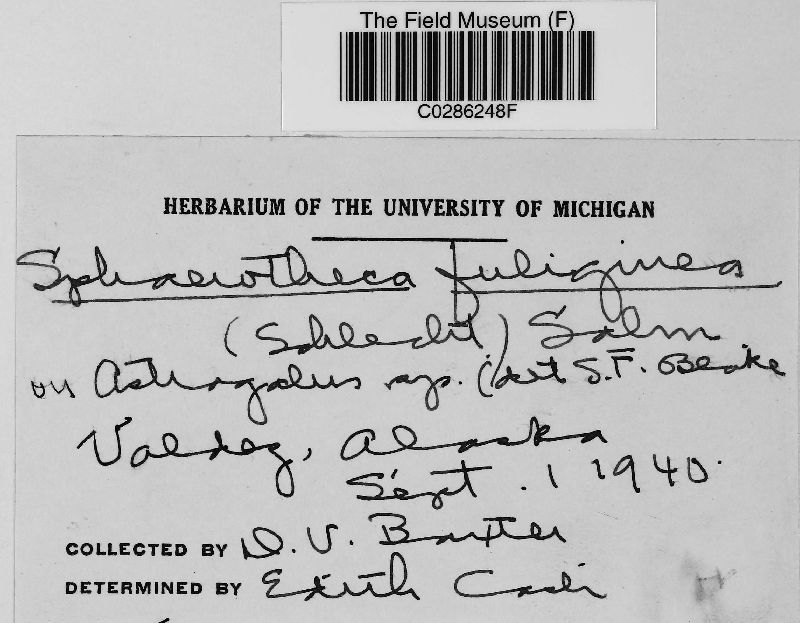 The Field Museum (F)
C0286248F
HERBARIUM OF THE UNIVERSITY OF MICHIGAN
Sphaerotheca fuliginea
(Schlecht) Salm
on Astragalus sp. (det S.F. Blake
Valdez, Alaska
Sept. 1 1940.
COLLECTED BY D. V. Baxter
DETERMINED BY Edith Cash